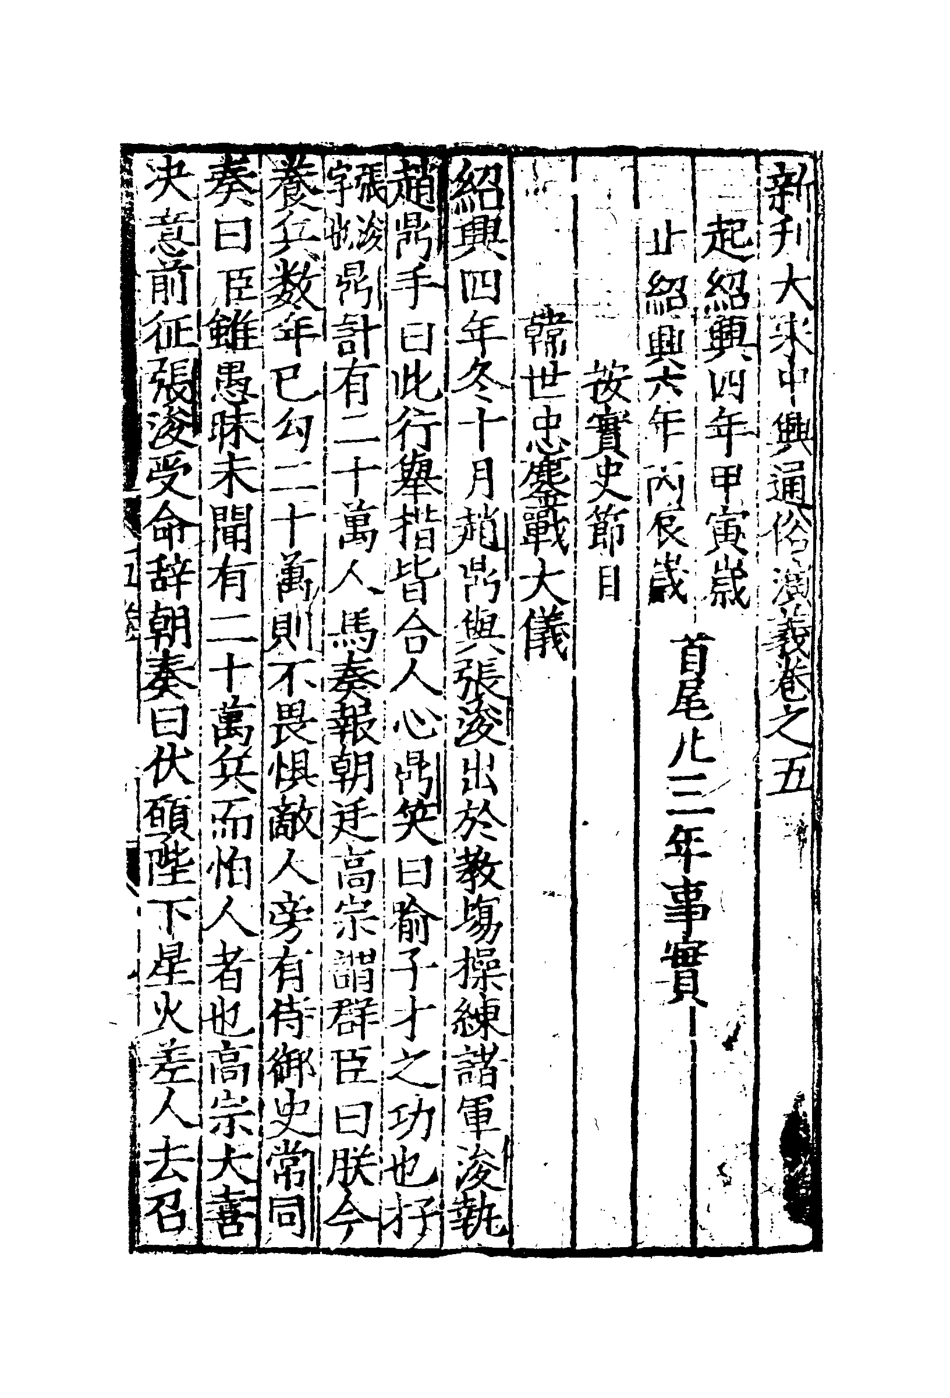 新刊大宋中興通俗演義卷之五
起紹興四年甲寅歲
止紹興六年丙辰歲
首尾凡三年事實
按實史節目
韓世忠鏖戰大儀
紹興四年冬十月趙鼎與張浚出於教塲操練諸軍浚執
趙鼎手曰此行舉措皆合人心鼎笑曰喻子才之功也孜
張浚字也鼎計有二十萬人馬奏報朝廷高宗謂群臣曰朕今
養兵数年已勾二十萬則不畏惧敵人旁有侍御史常同
奏曰臣雖愚昧未聞有二十萬兵而怕人者也高宗大喜
决意前征張浚受命辞朝奏曰伏頤陛下星火差人去召